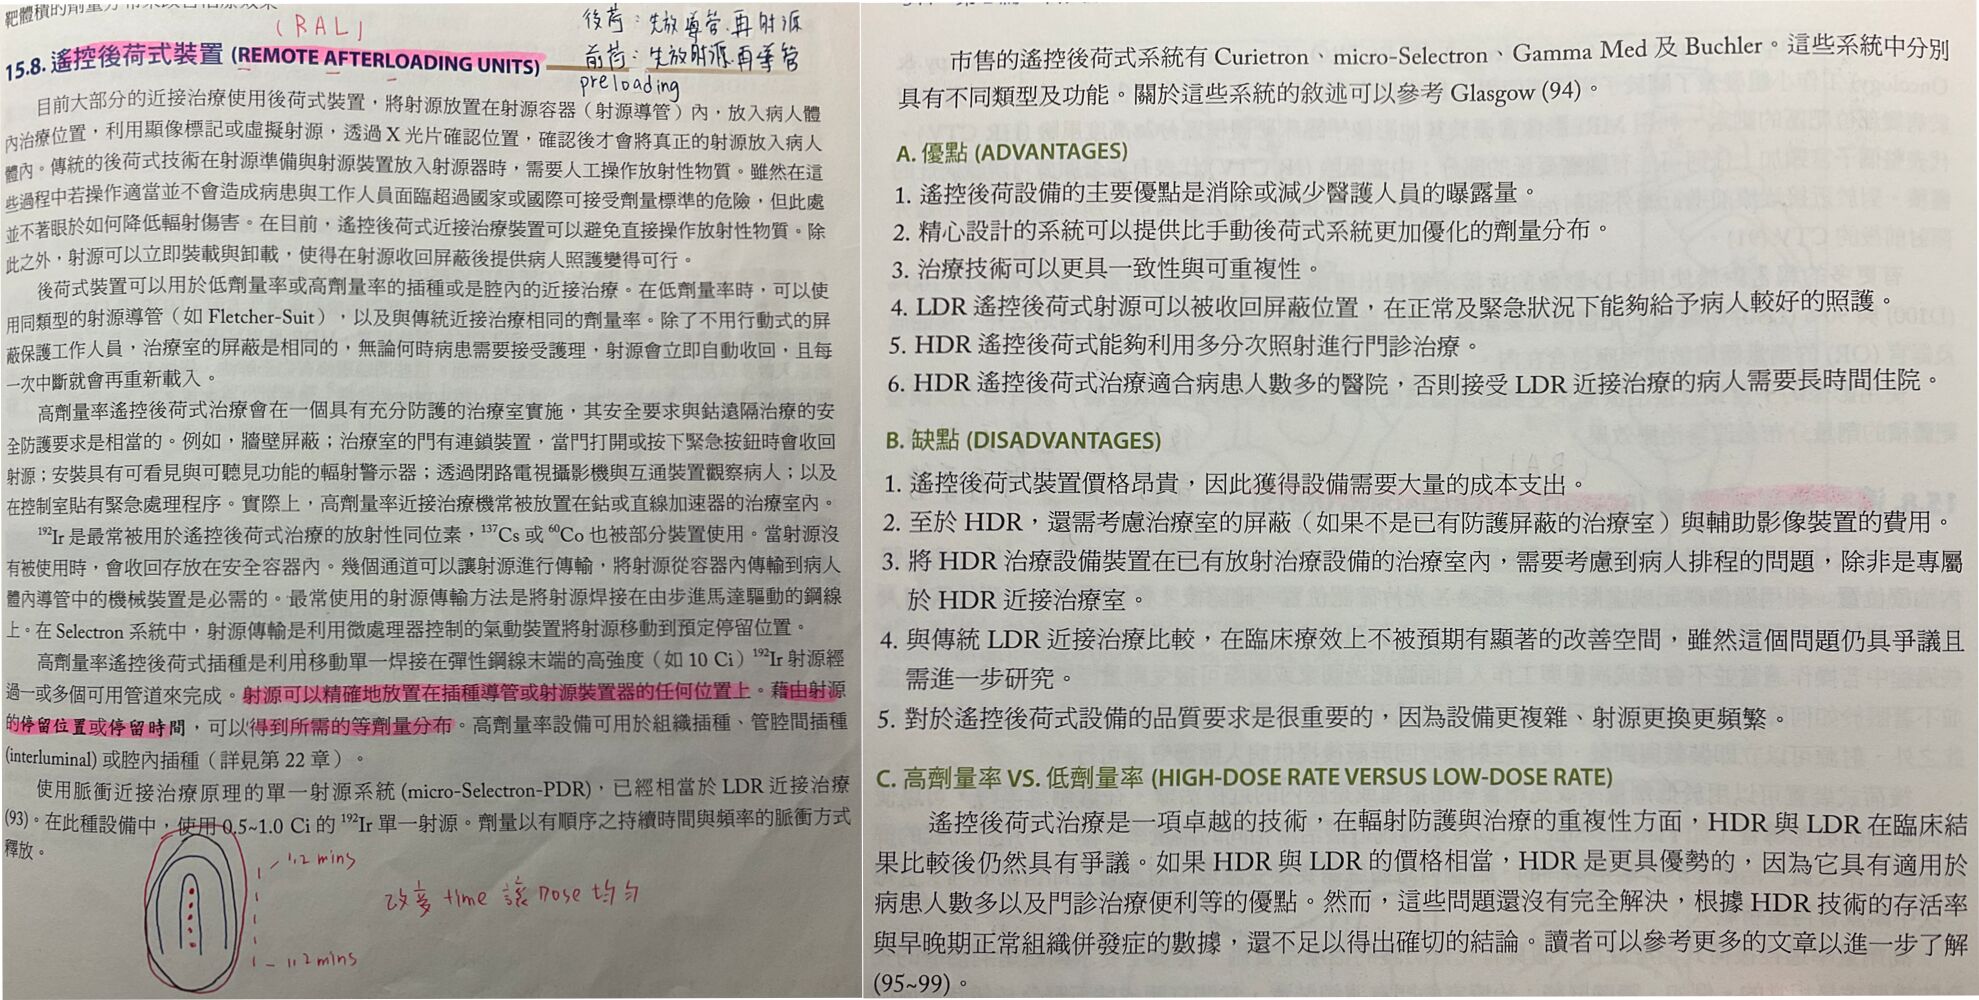 靶體積的劑量分布來改善治療效果
(RAL)
後荷：先放導管、再射源
前荷：先放射源再導管
preloading
15.8. 遙控後荷式裝置 (REMOTE AFTERLOADING UNITS)
目前大部分的近接治療使用後荷式裝置，將射源放置在射源容器（射源導管）內，放入病人體
內治療位置，利用顯像標記或虛擬射源，透過 X 光片確認位置，確認後才會將真正的射源放入病人
體內。傳統的後荷式技術在射源準備與射源裝置放入射源器時，需要人工操作放射性物質。雖然在這
些過程中若操作適當並不會造成病患與工作人員面臨超過國家或國際可接受劑量標準的危險，但此處
並不著眼於如何降低輻射傷害。在目前，遙控後荷式近接治療裝置可以避免直接操作放射性物質。除
此之外，射源可以立即裝載與卸載，使得在射源收回屏蔽後提供病人照護變得可行。
後荷式裝置可以用於低劑量率或高劑量率的插種或是腔內的近接治療。在低劑量率時，可以使
用同類型的射源導管（如 Fletcher-Suit），以及與傳統近接治療相同的劑量率。除了不用行動式的屏
蔽保護工作人員，治療室的屏蔽是相同的，無論何時病患需要接受護理，射源會立即自動收回，且每
一次中斷就會再重新載入。
高劑量率遙控後荷式治療會在一個具有充分防護的治療室實施，其安全要求與鈷遠隔治療的安
全防護要求是相當的。例如，牆壁屏蔽；治療室的門有連鎖裝置，當門打開或按下緊急按鈕時會收回
射源；安裝具有可看見與可聽見功能的輻射警示器；透過閉路電視攝影機與互通裝置觀察病人；以及
在控制室貼有緊急處理程序。實際上，高劑量率近接治療機常被放置在鈷或直線加速器的治療室內。
¹⁹²Ir 是最常被用於遙控後荷式治療的放射性同位素，¹³⁷Cs 或 ⁶⁰Co 也被部分裝置使用。當射源沒
有被使用時，會收回存放在安全容器內。幾個通道可以讓射源進行傳輸，將射源從容器內傳輸到病人
體內導管中的機械裝置是必需的。最常使用的射源傳輸方法是將射源焊接在由步進馬達驅動的鋼線
上。在 Selectron 系統中，射源傳輸是利用微處理器控制的氣動裝置將射源移動到預定停留位置。
高劑量率遙控後荷式插種是利用移動單一焊接在彈性鋼線末端的高強度（如 10 Ci）¹⁹²Ir 射源經
過一或多個可用管道來完成。射源可以精確地放置在插種導管或射源裝置器的任何位置上。藉由射源
的停留位置或停留時間，可以得到所需的等劑量分布。高劑量率設備可用於組織插種、管腔間插種
(interluminal) 或腔內插種（詳見第 22 章）。
使用脈衝近接治療原理的單一射源系統 (micro-Selectron-PDR)，已經相當於 LDR 近接治療
(93)。在此種設備中，使用 0.5~1.0 Ci 的 ¹⁹²Ir 單一射源。劑量以有順序之持續時間與頻率的脈衝方式
釋放。
1.2 mins
改變 time 讓 Dose 均勻
1.2 mins
市售的遙控後荷式系統有 Curietron、micro-Selectron、Gamma Med 及 Buchler。這些系統中分別
具有不同類型及功能。關於這些系統的敘述可以參考 Glasgow (94)。
A. 優點 (ADVANTAGES)
1. 遙控後荷設備的主要優點是消除或減少醫護人員的曝露量。
2. 精心設計的系統可以提供比手動後荷式系統更加優化的劑量分布。
3. 治療技術可以更具一致性與可重複性。
4. LDR 遙控後荷式射源可以被收回屏蔽位置，在正常及緊急狀況下能夠給予病人較好的照護。
5. HDR 遙控後荷式能夠利用多分次照射進行門診治療。
6. HDR 遙控後荷式治療適合病患人數多的醫院，否則接受 LDR 近接治療的病人需要長時間住院。
B. 缺點 (DISADVANTAGES)
1. 遙控後荷式裝置價格昂貴，因此獲得設備需要大量的成本支出。
2. 至於 HDR，還需考慮治療室的屏蔽（如果不是已有防護屏蔽的治療室）與輔助影像裝置的費用。
3. 將 HDR 治療設備裝置在已有放射治療設備的治療室內，需要考慮到病人排程的問題，除非是專屬
於 HDR 近接治療室。
4. 與傳統 LDR 近接治療比較，在臨床療效上不被預期有顯著的改善空間，雖然這個問題仍具爭議且
需進一步研究。
5. 對於遙控後荷式設備的品質要求是很重要的，因為設備更複雜、射源更換更頻繁。
C. 高劑量率 VS. 低劑量率 (HIGH-DOSE RATE VERSUS LOW-DOSE RATE)
遙控後荷式治療是一項卓越的技術，在輻射防護與治療的重複性方面，HDR 與 LDR 在臨床結
果比較後仍然具有爭議。如果 HDR 與 LDR 的價格相當，HDR 是更具優勢的，因為它具有適用於
病患人數多以及門診治療便利等的優點。然而，這些問題還沒有完全解決，根據 HDR 技術的存活率
與早晚期正常組織併發症的數據，還不足以得出確切的結論。讀者可以參考更多的文章以進一步了解
(95~99)。